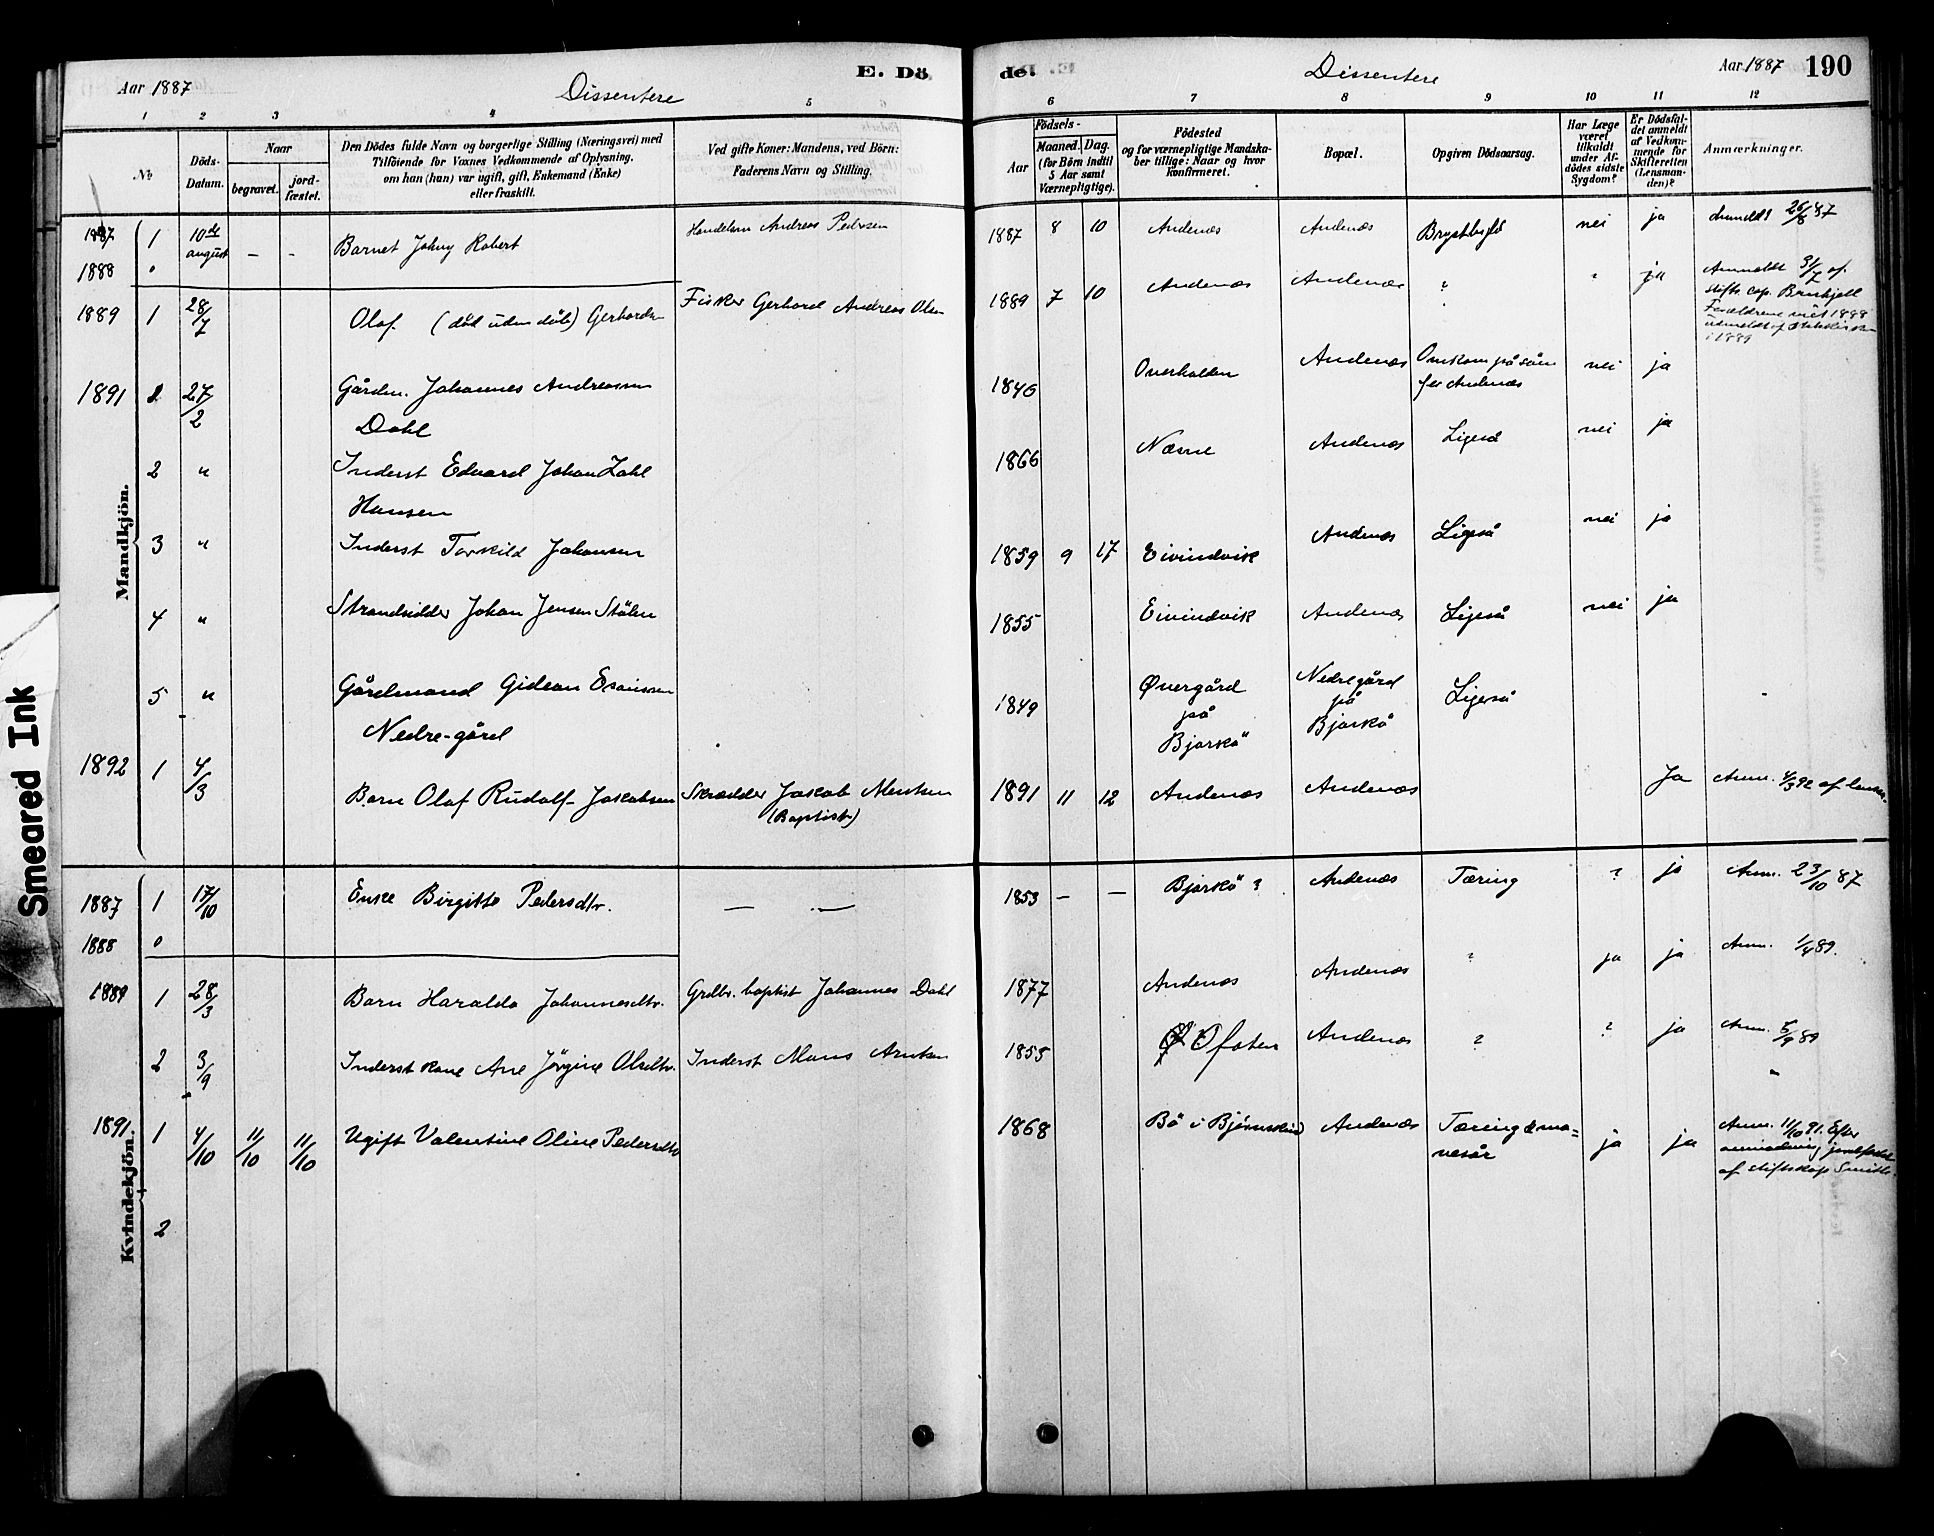 Aar 1887
Dissentere
E. Dö
de.
Dissentere
Aar 1887 190
1 2 3 4 5
6 7 8 9 10 11 12
No
Döds-
Datum.
Naar
begravet.
jord-
fæstet.
Den Dödes fulde Navn og borgerlige Stilling (Næringsvei) med
Tilföiende for Voxnes Vedkommende af Oplysning,
om han (hun) var ugift, gift, Enkemand (Enke)
eller fraskilt.
Ved gifte Koner: Mandens, ved Börn:
Faderens Navn og Stilling.
Aar
Födsels-
Maaned. Dag.
(for Börn indtil
5 Aar samt
Værnepligtige).
Födested
og for værnepligtige Mandska-
ber tillige: Naar og hvor
konfirmeret.
Bopæl.
Opgiven Dödsaarsag.
Har Læge
været
tilkaldt
under Af-
dödes sidste
Sygdom?
Er Dödsfal-
det anmeldt
af Vedkom-
mende for
Skifteretten
(Lensman-
den)?
Anmærkninger.
Mandkjön.
1887 1 10de august – - Barnet Johny Robert Andreas Pedersen 1887 8 10 Andenæs Andenæs nei ja Anmeldt 26/8 87
1888 0
1889 1 28/7 Olaf (död uden dåb) Gerhards Fisker Gerhard Andreas Olsen 1889 7 10 Andenæs Andenæs ? ja Anmeldt 31/7 af
stifts cap.
Forældrene 1888
i 1889
1891 1 27/2 Gårdm. Johannes Andreassen 1846 Overhalden Andenæs Omkom på söen nei ja
Dahl
for Andenæs
2 " Inderst Edvard Johan Zahl 1866 Næsne Andenæs Ligeså nei ja
Hansen
3 " Inderst Torkild Johansen 1859 9 17 Eivindvik Andenæs Ligeså nei ja
4 " Strandsidder Johan Jensen Stölen 1855 Eivindvik Andenæs Ligeså nei ja
5 " Gårdmand Gideon Esaissen 1849 Øvergård Nedregård Ligeså
på på
Nedre-gård
Bjarkö Bjarkö
1892 1 4/3 Barn Olaf Rudolf Jakobsen Skrædder Jakob 1891 11 12 Andenæs Andenæs Ja Anm. 4/3 92 af lensm.
(Baptist)
Kvindekjön.
1887 1 17/10 Enke Birgitte Pedersdtr. — — 1853 – – Bjarkö ? Andenæs Tæring ? ja Anm. 23/10 87
1888 0
1889 1 28/3 Barn Haralda Johannesdtr. Grdbr. baptist Johannes Dahl 1877 Andenæs Andenæs ? ja ja Anm. 1/4 89.
2 3/9 Inderst kone Ane Jörgine Olsdtr. Inderst Mons Arntsen 1855 Ofoten Andenæs ? ? ja Anm. 5/9 89
1891. 1 4/10 11/10 11/10 Ugift Valentine Oline Pedersdtr 1868 Bö i Bjørnskind Andenæs Tæring & ma= ja ja Anm. 11/10 91. Efter
vesår
anmodning jordfæstet
af stiftskap. Smith.
2
Smeared Ink